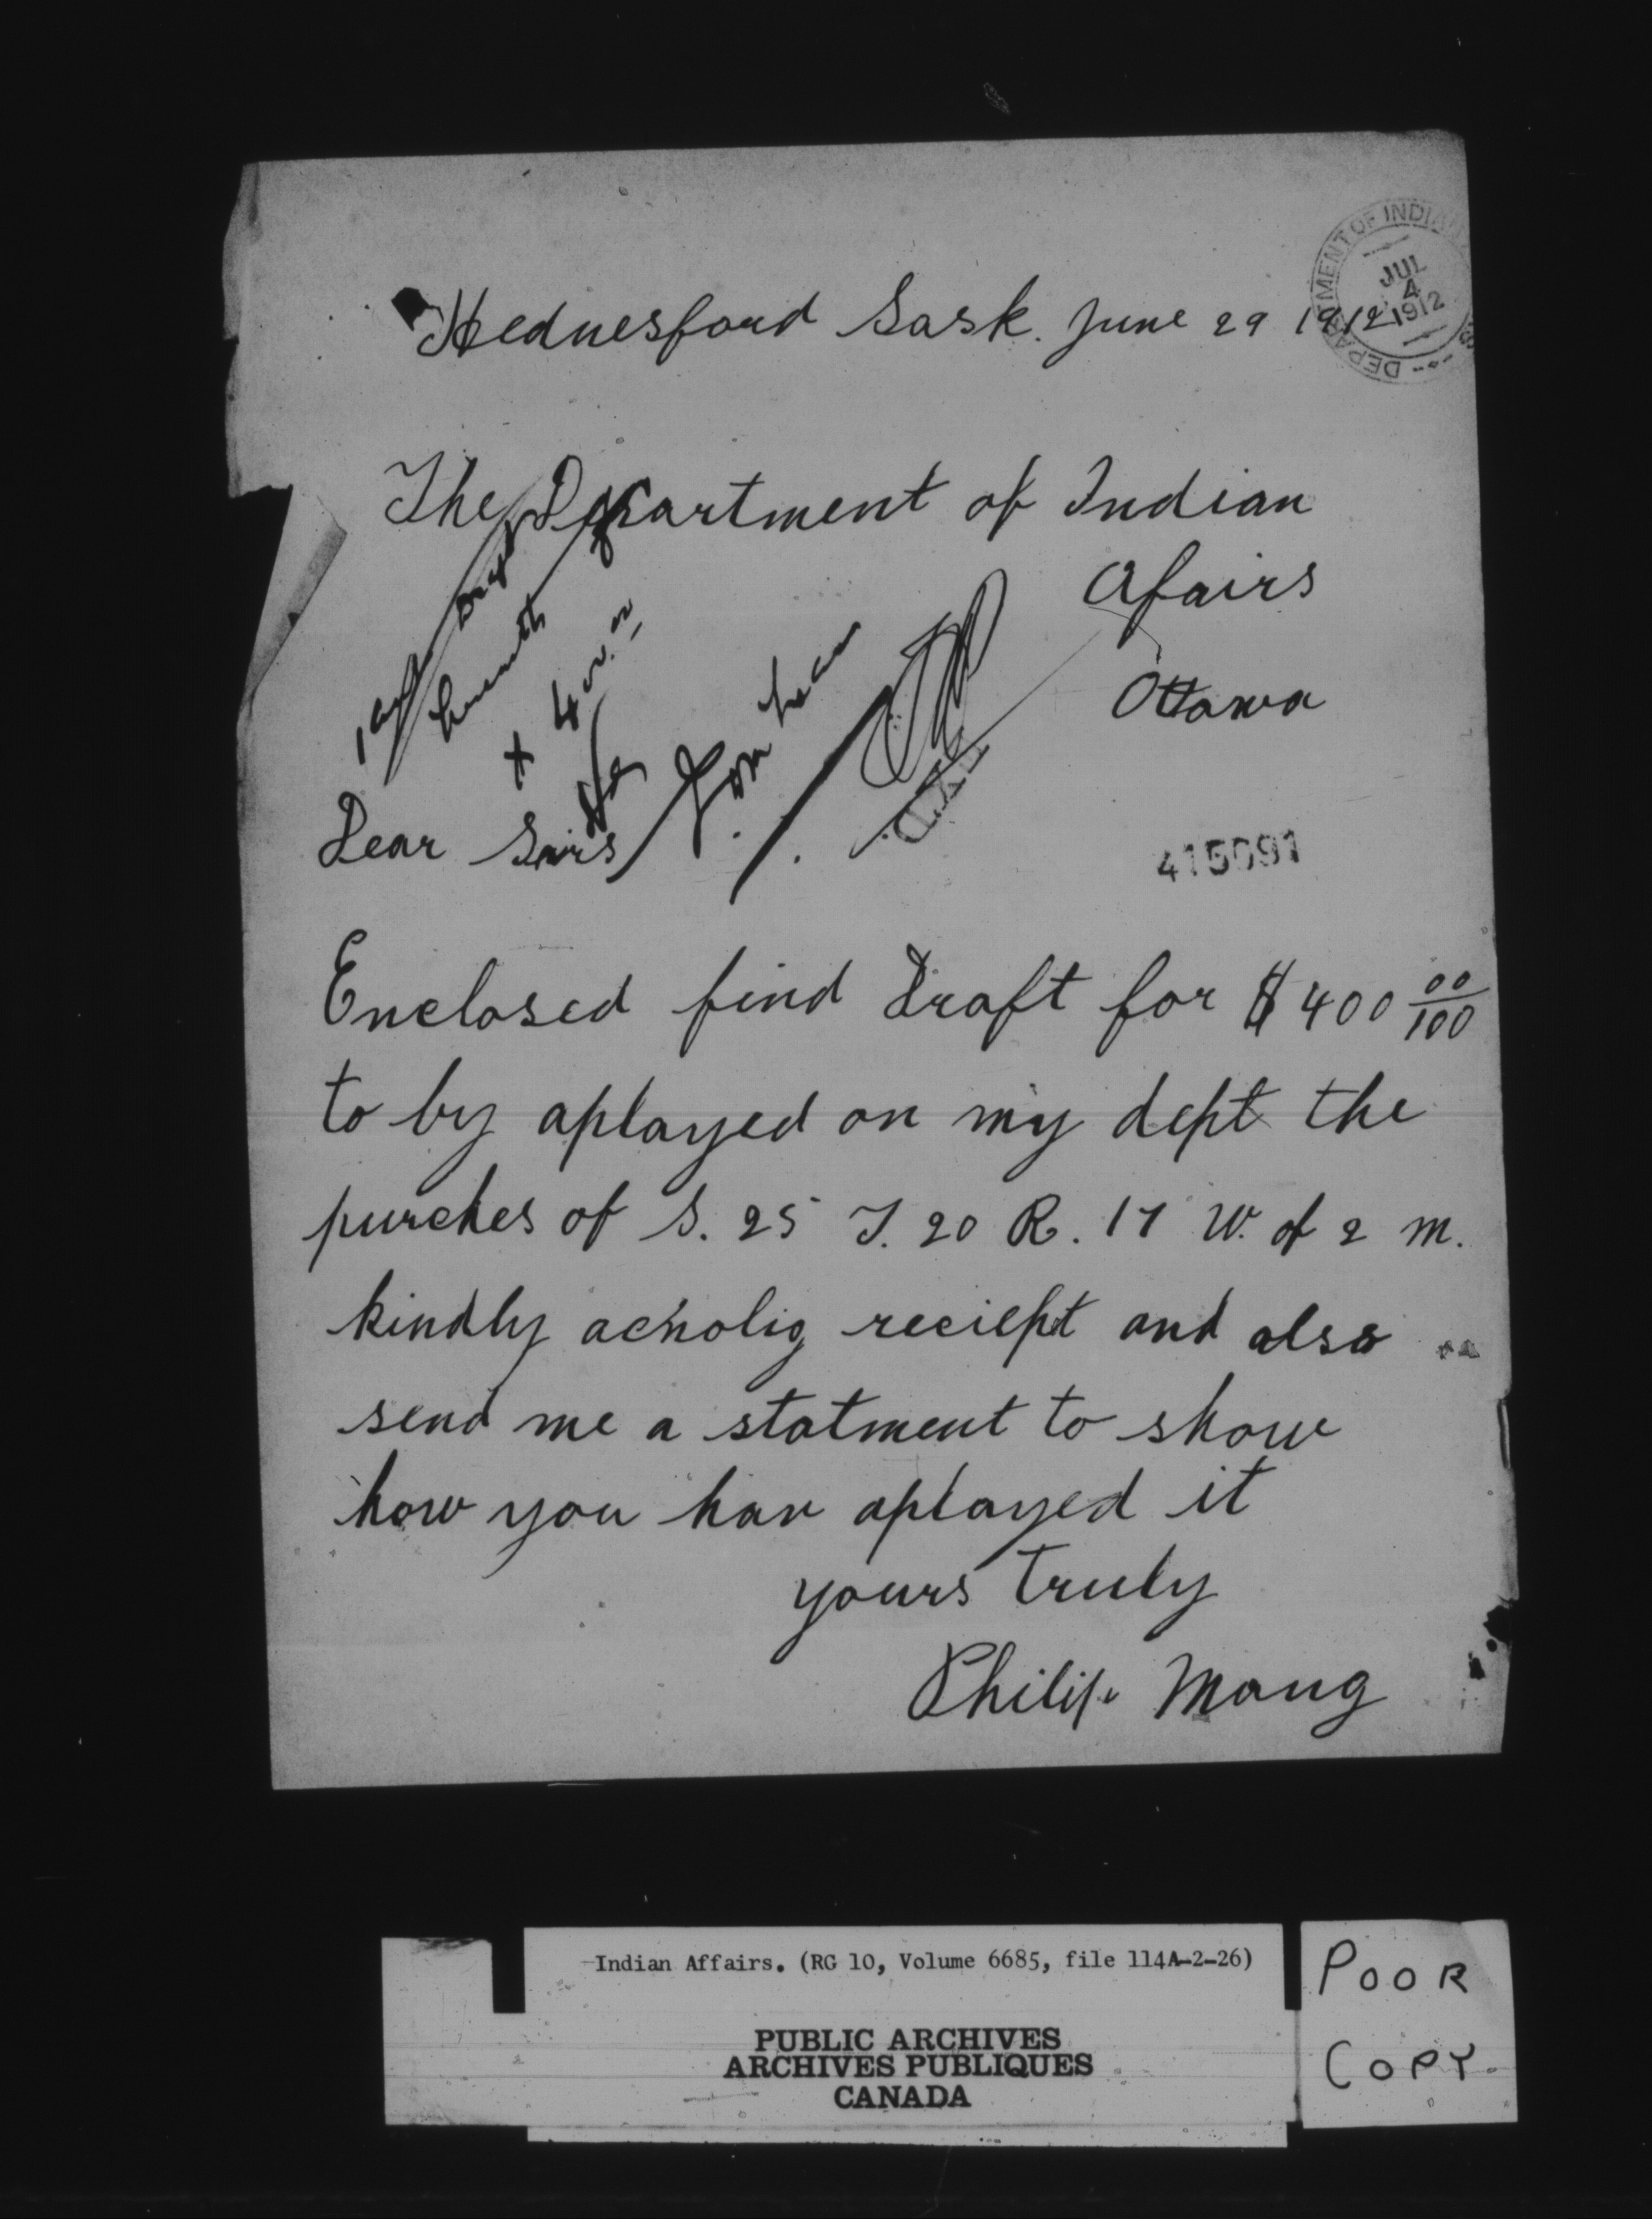 Hednesford Sask. June 29 1912
DEPARTMENT OF INDIAN
JUL
4
1912
The Department of Indian
Afairs
Ottawa
Dear Sairs
415091
Enclosed find Draft for $400 00/100
to by aplayed on my dept the
purches of S. 25 T. 20 R. 17 W. of 2 M.
kindly acnolig reciept and also
send me a statment to show
how you hav aplayed it
yours truly
Philip Mang
Indian Affairs. (RG 10, Volume 6685, file 114A-2-26)
PUBLIC ARCHIVES
ARCHIVES PUBLIQUES
CANADA
POOR
COPY